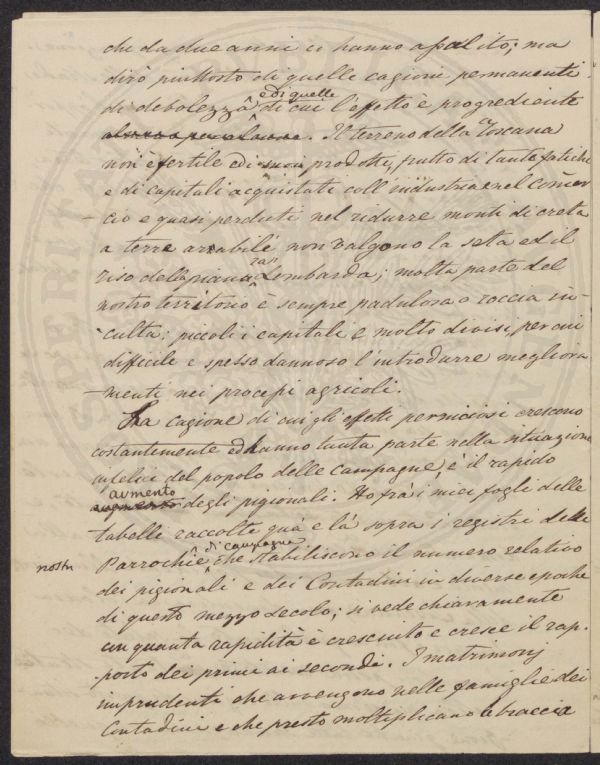 che da due anni ci hanno assalito; ma
dirò piuttosto di quelle cagioni permanenti
e di quelle
di debolezza di cui l'effetto è progrediente
. Il terreno della Toscana
non è fertile ed i suoi prodotti, frutto di tante fatiche
e di capitali acquistati coll'industria e nel Comer-
-cio e quasi perduti nel ridurre monti di creta
a terre arabili non valgono la seta ed il
riso della pianura Lombarda; molta parte del
nostro territorio è sempre padulosa o roccia in-
culta: piccoli i capitali e molto divisi, per cui
difficile e spesso dannoso l'introdurre migliora
-menti nei processi agricoli.
La cagione di cui gli effetti perniciosi crescono
costantemente ed hanno tanta parte nella situazione
infelice del popolo delle campagne, è il rapido
aumento
augmento degli pigionali. Ho frà i miei fogli delle
tabelle raccolte quà e là sopra i registri delle
di campagna
nostre Parrochie che stabiliscono il numero relativo
dei pigionali e dei Contadini in diverse epoche
di questo mezzo secolo; si vede chiaramente
con quanta rapidità è cresciuto e cresce il rap-
-porto dei primi ai secondi. I matrimonj
imprudenti che avvengono nelle famiglie dei
Contadini e che presto moltiplicano le braccia